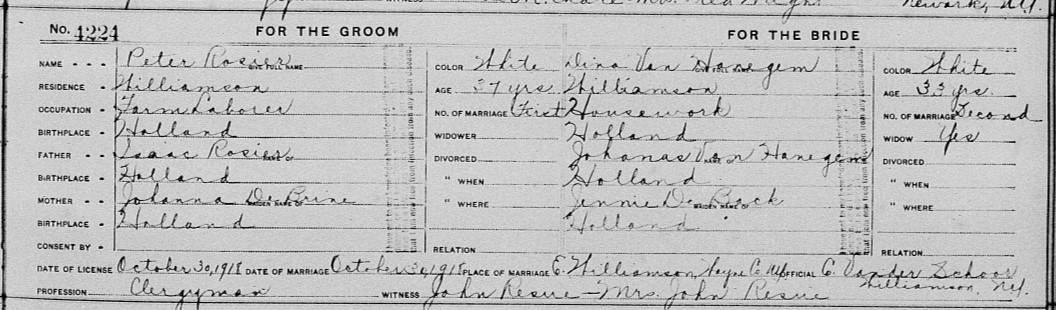 Newark, N.Y.
No. 4224 FOR THE GROOM FOR THE BRIDE
NAME - - - Peter Rosier COLOR White Dina Van Hanegem COLOR White
RESIDENCE - Williamson AGE 37 yrs. Williamson AGE 33 yrs.
OCCUPATION - Farm Laborer NO. OF MARRIAGE First Housework NO. OF MARRIAGE Second
BIRTHPLACE - Holland WIDOWER Holland WIDOW Yes
FATHER - - Isaac Rosier DIVORCED Johanas Van Hanegem DIVORCED
BIRTHPLACE - Holland " WHEN Holland " WHEN
MOTHER - - Johanna De Brine MAIDEN NAME OF " WHERE Jennie De Back MAIDEN NAME OF " WHERE
BIRTHPLACE - Holland Holland
CONSENT BY - RELATION RELATION
DATE OF LICENSE October 30, 1918 DATE OF MARRIAGE October 1918 PLACE OF MARRIAGE E. Williamson, Wayne Co. N.Y. OFFICIAL C. Vander Schoor
PROFESSION Clergyman WITNESS John Resue - Mrs. John Resue Williamson, N.Y.